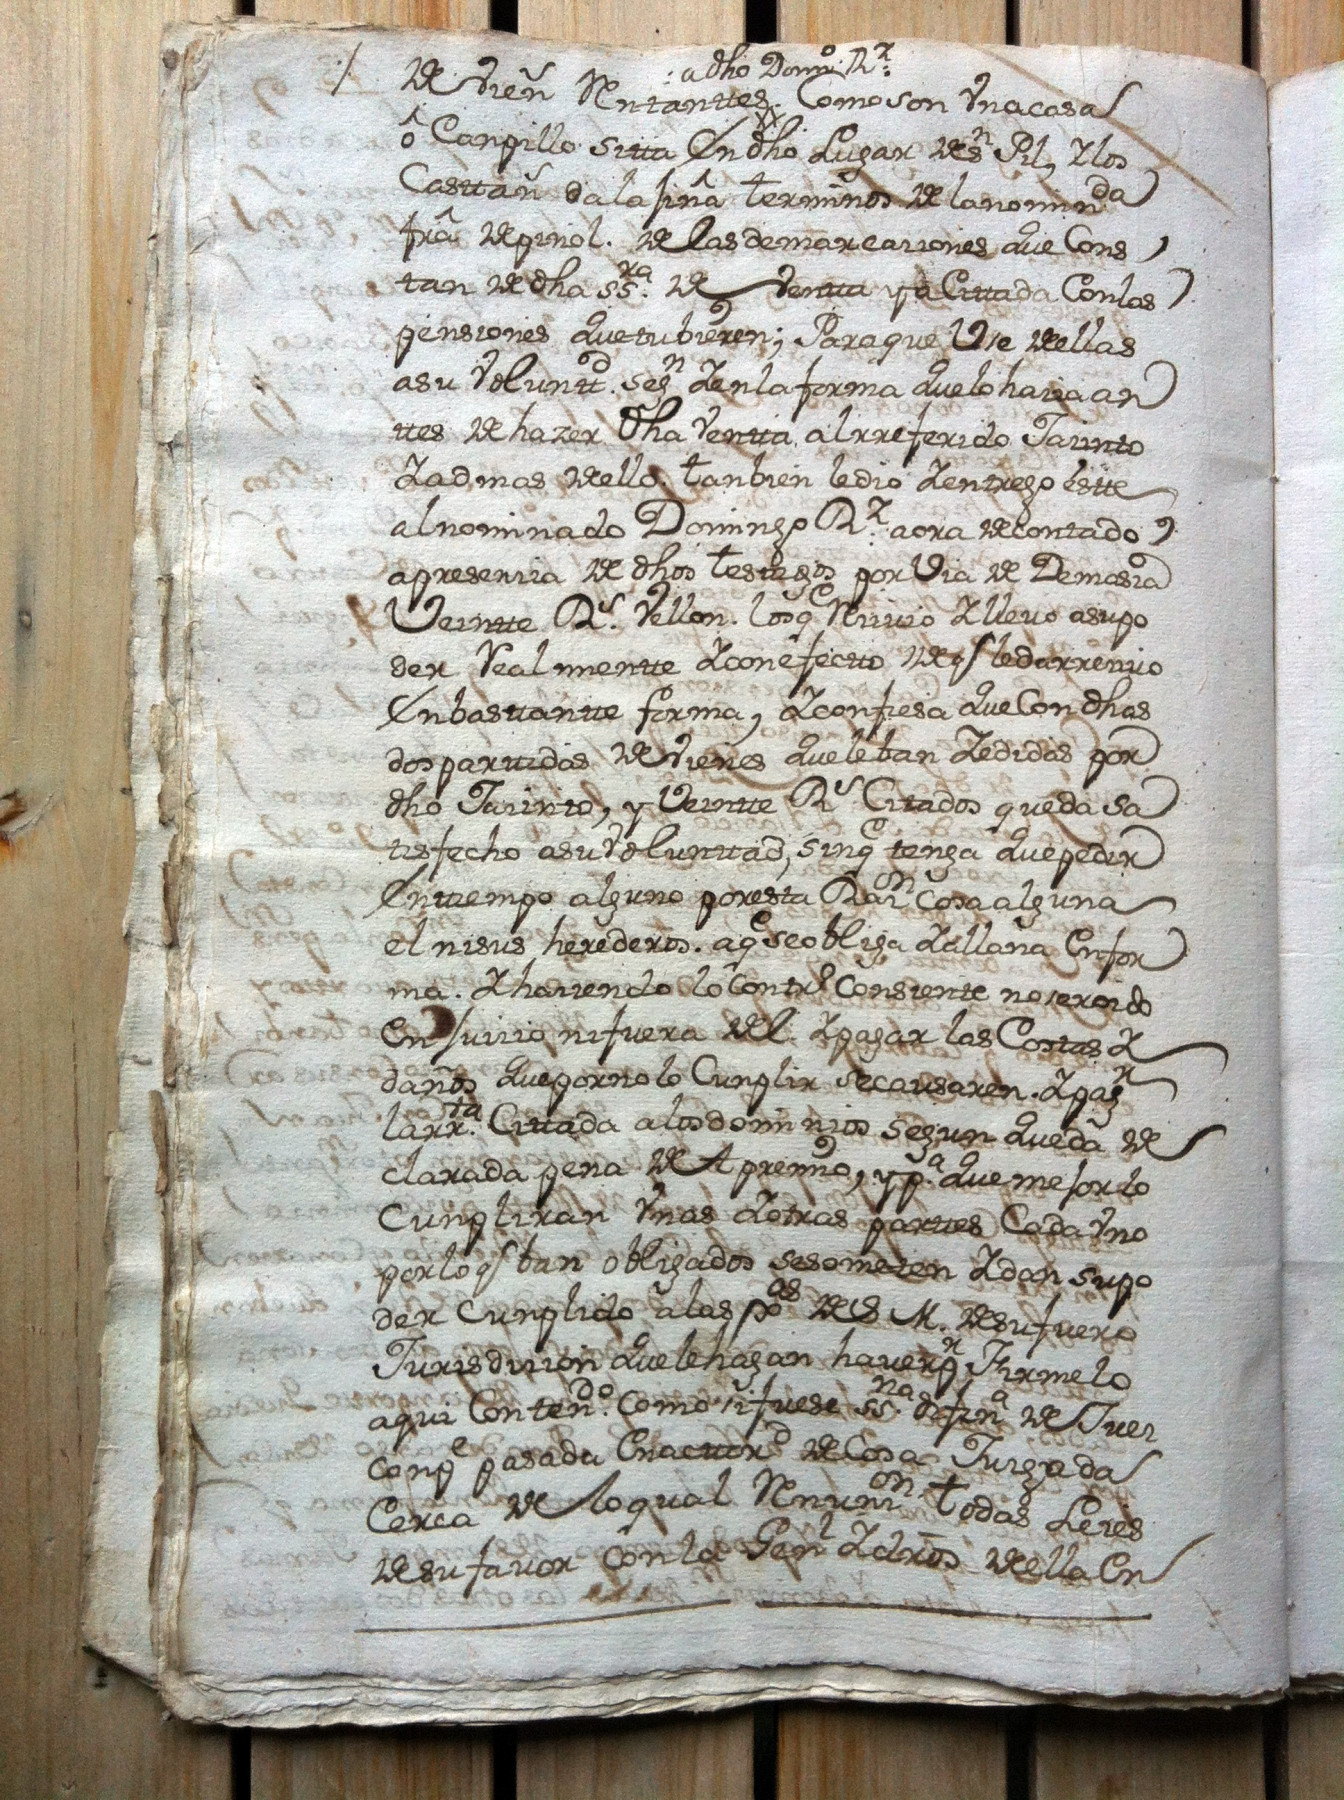 adho Domº Rz
de vien Rentanttes. Como son Vna casa
ô Canpillo sitta En dho Lugar de Sn Pil, Y los
Casttañ da la sinâ terminos de la nomin da
frâ de pinol. de las demarcaciones que Cons
tan de dha ssra. de Ventta ya Cittada Con las
pensiones que tubieren; Para que Vse dellas
a su Voluntt d. segn Y en la forma que lo hacia an
ttes de hazer dha Ventta al rreferido Jacinto
Y ad mas dello. tanbien le dio Y entrego este
al nominado Domingo Rz. aora de contado,
a presencia de dhos testigos por Via de Demasia
Veintte Rs. Vellon. los qe Recivio Y llevo a su po
der Realmentte Y con efectto de q le da rrecivo
En basttantte forma, Y confiesa que Con dhas
dos parttidas de vienes que le ban Zedidas por
dho Jacinto, y Veintte Rs Citados queda sa
tisfecho a su Volunttad, sin qe tenga que pedir
En ttiempo alguno por esta Racon Cosa alguna
el ni sus herederos. a qe se obliga Y allana En for
ma. Y haciendo lo Contro Consiente no ser oido
En Juicio ni fuera del. Y pagar las Costas Y
daños que por no lo Cunplir se causaren. Y pagr
la rrta. Cittada a los dominios segun queda de
clarada pena de Apremio, y pa. que mejor lo
Cunpliran Vnas Y otras parttes Cada Vno
por lo q ban obligados se someten Y dan su po
der Cunplido a las Jos as de S M. de su fuero
Jurisdicion que le hagan haver pr Firme lo
aqui Conten do. Como si fuese ssna. defina de Juez
conpe pasada En acttor d de Cosa Juzgada
Cerca de lo qual Renunci on todas Leies
de su favor Con la Genl Y dros della En